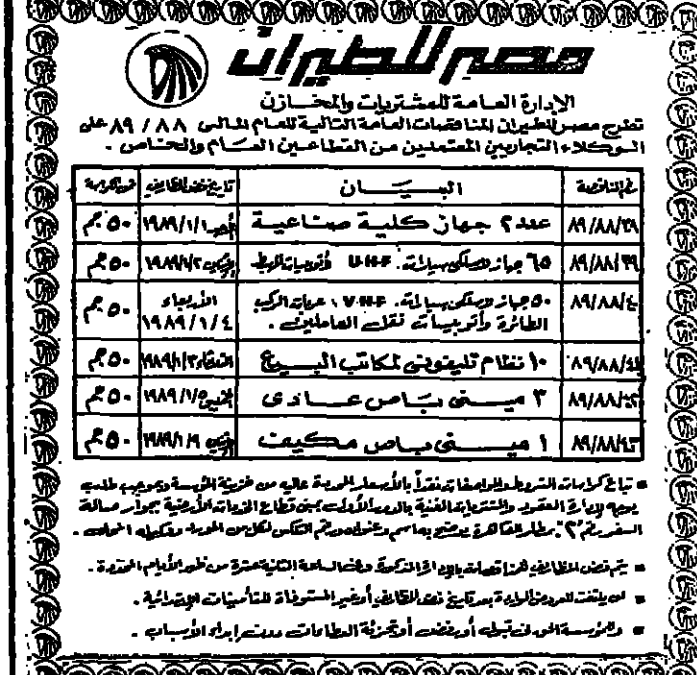 مصر للطيران
الإدارة العامة للمشتريات والمخازن
تطرح مصر للطيران المناقصات العامة التالية للعام المالى ٨٨ / ٨٩ على
الوكلاء التجاريين المعتمدين من القطاعين العام والخاص .
رقم المناقصة البيـــان تاريخ فض المظاريف ثمن الكراسة
٨٩/٨٨/٣٨ عدد ٢ جهاز كلية صناعية الأحد ١٩٨٩/١/١ ٥٠ جم
٨٩/٨٨/٣٩ ٦٥ جهاز لاسلكى سيارات U.H.F لأتوبيسات المهبط الاثنين ١٩٨٩/١/٢ ٥٠ جم
٨٩/٨٨/٤٠ ٥٠ جهاز لاسلكى سيارات V.H.F ، عربات الركب الأربعاء ٥٠ جم
الطائرة وأتوبيسات نقل العاملين . ١٩٨٩/١/٤
٨٩/٨٨/٤١ ١٠ نظام تليفونى لمكاتب البيع الثلاثاء ١٩٨٩/١/٣ ٥٠ جم
٨٩/٨٨/٤٢ ٣ مينى باص عادى الخميس ١٩٨٩/١/٥ ٥٠ جم
٨٩/٨٨/٤٣ ١ مينى باص مكيف الاثنين ١٩٨٩/١/٩ ٥٠ جم
تباع كراسات الشروط والمواصفات نقداً بالأسعار الموردة عاليه من خزينة المؤسسة وبموجب طلب
يوجه لإدارة العقود والمشتريات الفنية بالدور الأول بمبنى قطاع الخدمات الأرضية بجوار صالة
السفر رقم "٢" بمطار القاهرة يوضح به اسم وعنوان ورقم التلكس لكل من المورد ووكيله المحلى .
يتم فض المظاريف لهذه المناقصات بالإدارة المذكورة وفى الساعة الثانية عشرة من ظهر الأيام المحددة .
لن يلتفت للعروض الواردة بعد تاريخ فض المظاريف أو غير المستوفاة للتأمينات الابتدائية .
وللمؤسسة الحق فى قبول أو رفض أو تجزئة العطاءات دون إبداء الأسباب .